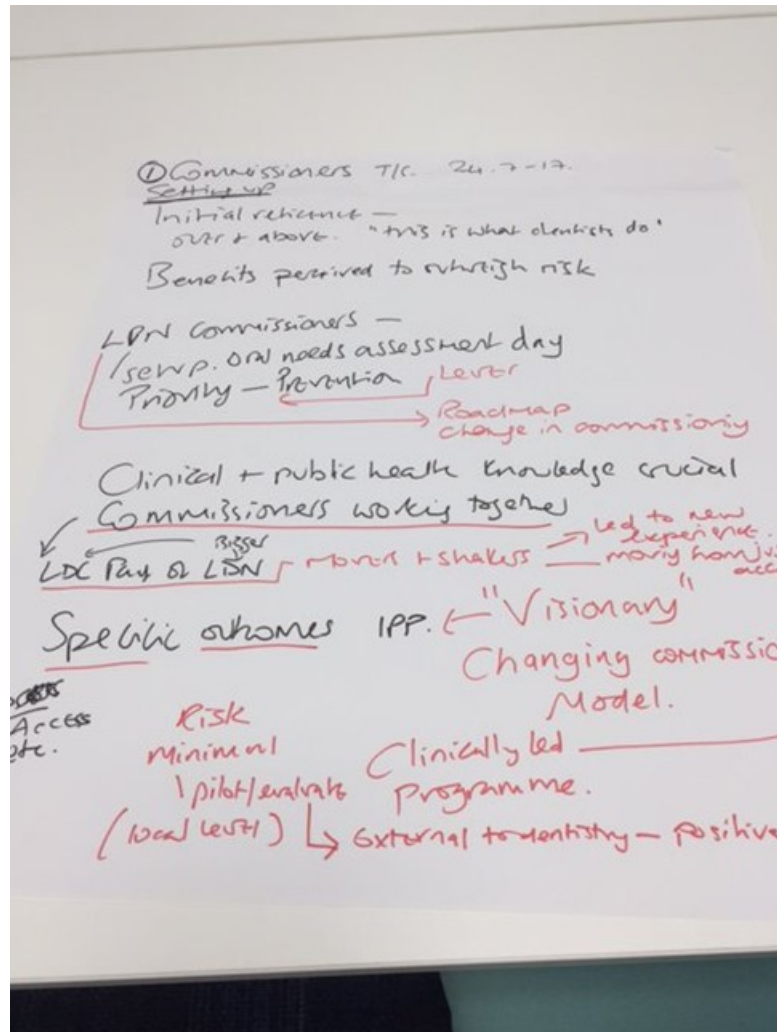 ① Commissioners T/C. 24.7-17.
Setting up
Initial reticence —
over + above. "this is what dentists do"
Benefits perceived to outweigh risk
LDN Commissioners —
/set up. oral needs assessment day
Priority — Prevention Lever
Roadmap
change in commissioning
Clinical + public health knowledge crucial
Commissioners working together
Bigger
LDC Part of LDN movers + shakers led to new
experience.
moving from
Specific outcomes IPP. "Visionary"
Changing commissio
Model.
Access
etc.
Risk
minimal
pilot/evaluate
(local level)
Clinically led
programme.
External to dentistry — positive